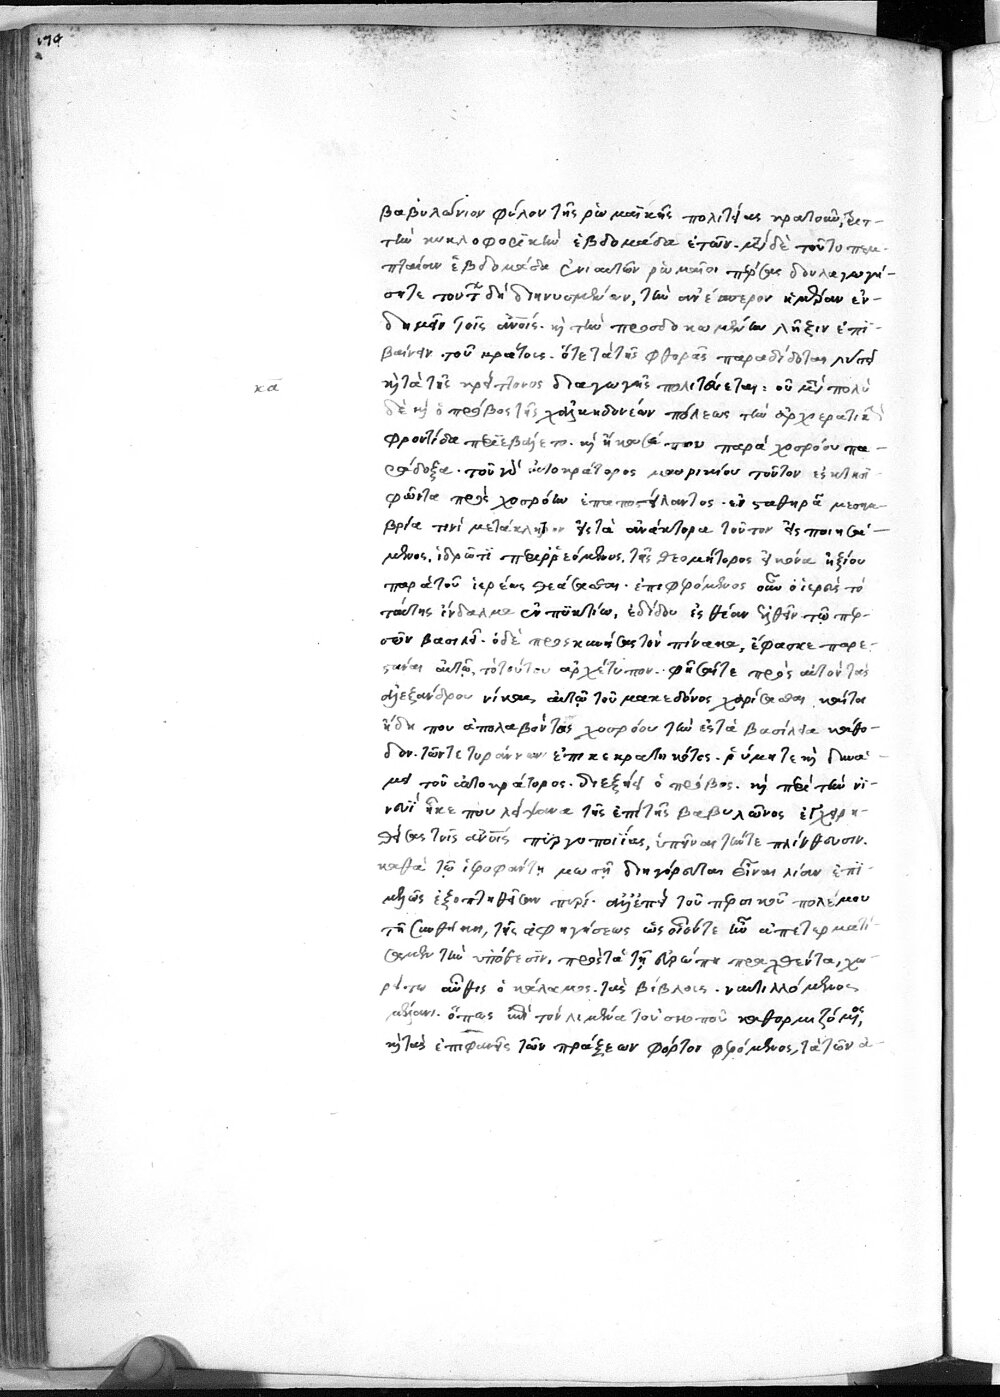 174
βαβυλώνιον φύλον τῆς ῥωμαϊκῆς πολιτείας κρατοῦν, ἐπὶ
τὴν κυκλοφορικὴν ἑβδομάδα ἐτῶν. μετὰ δὲ τοῦτο πεμ-
πταίαν ἑβδομάδα ἐνιαυτῶν ῥωμαῖοι πέρσας δουλαγωγή-
σητε τούτων δὴ διηνυσμένων, τὴν ἀνέσπερον ἡμέραν ἐν-
δημεῖν τοῖς ἀνοις. κὶ τὴν προσδοκωμένην λῆξιν ἐπι-
βαίνειν τοῦ κράτους. ὅτε τὰ τῆς φθορᾶς παραδίδοται λύσει
κὶ τὰ τῆς κρείττονος διαγωγῆς πολιτεύεται: οὐ μετὰ πολὺ
κα
δὲ κὶ ὁ πρόβος τῆς χαλκηδονέων πόλεως τὴν ἀρχιερατικὴν
φροντίδα περιεβάλετο. κὶ ἠκηκόει που παρὰ χοσρόου πα-
ράδοξα. τοῦ γὰρ αὐτοκράτορος μαυρικίου τοῦτον
πρὸς χοσρόην ἐκπεπομφότος. ἐν σταθηρᾷ μεσημ-
βρία τινὶ μετάκλητον ἐς τὰ ἀνάκτορα τοῦτον ἐσποιησά-
μενος, ἱδρῶτι περιρρεόμενος, τῆς θεομήτορος εἰκόνα ἠξίου
παρὰ τοῦ ἱερέως θεάσασθαι. ἐπιφερόμενος οὖν ὁ ἱερεὺς τὸ
ταύτης ἴνδαλμα ἐν πυκτίω, ἐδίδου ἐς θέαν ἐλθεῖν τῷ περ-
σῶν βασιλεῖ. ὁ δὲ προσκυνήσας τὸν πίνακα, ἔφασκε παρε-
στάναι αὐτῷ, τὸ τούτου ἀρχέτυπον. φῆσαί τε πρὸς αὐτὸν τὰς
ἀλεξάνδρου νίκας αὐτῷ τοῦ μακεδόνος χαρίσασθαι, καίτοι
ἤδη που ἀπολαβόντος χοσρόου τὴν ἐς τὰ βασίλεια κάθο-
δον. τῶν τε τυράννων ἐπικεκρατηκότος. ῥύμη τε κὶ δυνά-
μει τοῦ αὐτοκράτορος. διεξῄει ὁ πρόβος. κὶ περὶ τὴν νι-
νευὶ ἥκε που λείψανα τῆς ἐπὶ τῆς βαβυλῶνος ἐγχειρη-
θείσης τοῖς ἀνοις πυργοποιίας, ὑπεῖναι τήν τε πλίνθευσιν.
καθὰ τῷ ἱεροφάντη μωσῆ διηγόρευται εἶναι λίαν ἐπι-
μελῶς ἐξοπτηθεῖσαν πυρί. ἀλλ' ἐπεὶ τοῦ περσικοῦ πολέμου
τῇ συνθήκη, τῆς ἀφηγήσεως ὡς οἷόν τε ἦν ἀπετερματί-
σαμεν τὴν ὑπόθεσιν, πρὸς τὰ τῇ εὐρώπη πραχθέντα, χω-
ρείτω αὖθις ὁ κάλαμος. τοῖς βίβλοις. ναυτιλλόμενος
μέλανι. ὅπως ἐπὶ τὸν λιμένα τοῦ σκοποῦ καθορμιζόμενος,
κὶ τὰς ἐπιφανεῖς τῶν πράξεων φόρτον φερόμενος, τὰ τῶν ἀ-